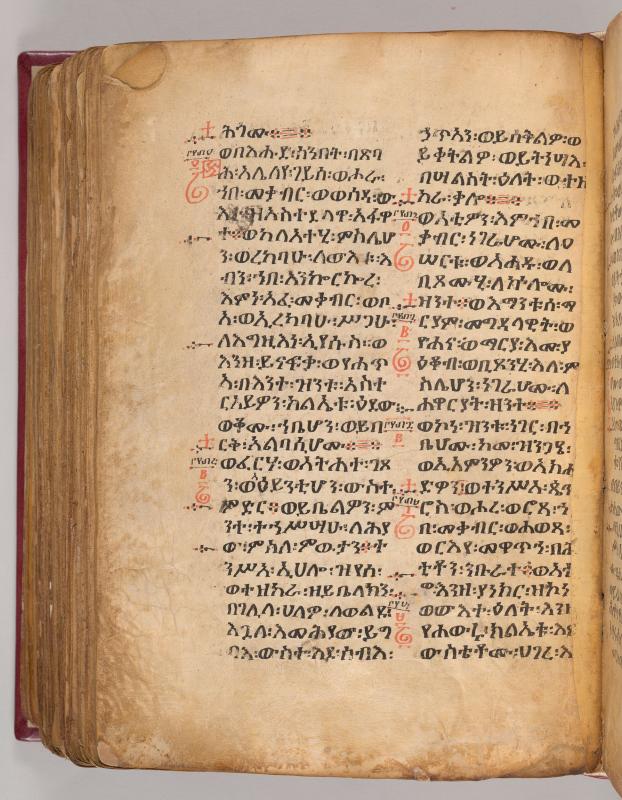 ሕገሙ፨
ወበእሑድ፡አንበት፡በጽባ
ሕ፡አሌለየ፡ገይሰ፡ወሖራ፡
ኀበ፡መቃብር፡ወወሰዳ፡ው
ዘአስተደላዋ፡አፈዋ
ተ፡ወካልኣትሂ፡ምስሌሆ
ን፡ወረከባሁ፡ለውእቱ፡እ
ብን፡ኀበ፡አንኰርኰረ፡
እምነ፡አፈ፡መቃብር፡ወቦ
አ፡ወኢረከባሁ፡ሥጋሁ፡
ለእግዚእነ፡ኢየሱስ፡ወ
እንዘ፡ይናፍቃ፡ወየሐጥ
አ፡በእንተ፡ዝንቱ፡አስተ
ርአይዎን፡ክልኤቱ፡ዕደው፡
ወቆሙ፡ኀቤሆን፡ወይበ
ርቅ፡አልባሲሆሙ፨
ወፈርሃ፡ወአትሐተ፡ገጾ
ን፡ወዕይንቲሆን፡ውስተ
ምድር፡ወይቤልዎን፡ም
ንተ፡ተኀሥሣሁ፡ለሕያ
ው፡ምስለ፡ምውታን፡ተ
ንሥአ፡ኢሀሎ፡ዝየሰ፡
ወተዘከራ፡ዘይቤለክን፡
በገሊላ፡ሀለዎ፡ለወልደ፡
እጓለ፡እመሕያው፡ይግ
ባእ፡ውስተ፡እደ፡ሰብእ፡
ኃጥኣን፡ወይሰቅልዎ፡ወ
ይቀትልዎ፡ወይትነሣእ፡
በሣልስት፡ዕለት፡ወተዘ
ከራ፡ቃሎ፨
ወአቲዎን፡እምኀበ፡መ
ቃብር፡ነገራሆሙ፡ለ፲ወ
ወለ
ቢጾሙሂ፡ለኵሎሙ፡
ዝንተ፡ወእማንቱሰ፡ማ
ርያም፡መግደላዊት፡ወ
ዮሐና፡ወማርያ፡እሙ፡ያ
ዕቆብ፡ወቢጾንሂ፡እለ፡ም
ስሌሆን፡ነገራሆሙ፡ለ
ሐዋርያት፡ዘንተ፨
ወኮኖ፡ዝንቱ፡ነገር፡በኀ
ቤሆሙ፡ከመ፡ዝንጋዔ፡
ወኢአምንዎን፡ወአክሐ
ድዎን፡ወተንሥአ፡ጴጥ
ሮስ፡ወሖረ፡ወሮጸ፡ኀ
በ፡መቃብር፡ወሐወጸ፡
ወርእየ፡መዋጥሐ፡ባሕ
ቲቶን፡ንቡራተ፡ወአተ
ወ፡እንዘ፡ያነክር፡ዘኮነ፡
ወውእተ፡ዕለት፡እንዘ
የሐውሩ፡ክልኤቱ፡እ
ውስቴቶሙ፡ሀገረ፡እ